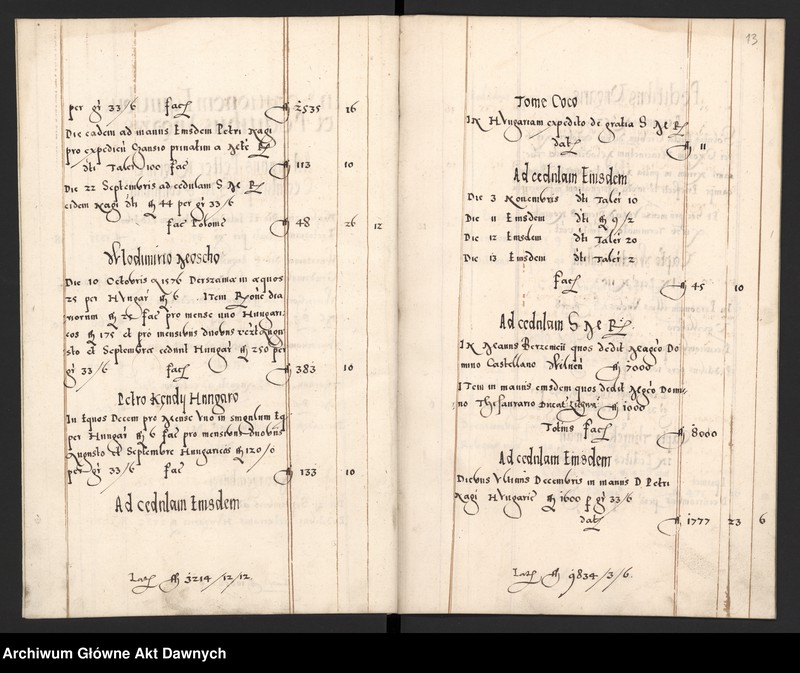 per gr 33/6 fac fl 2535 16
Die eadem ad manus Eiusdem Petri Nagi
pro expedicn Cransio prinatim a
dti Taler 100 fac fl 113 10
Die 22 Septembris ad cedulam S M R
eidem Nagi dti fl 44 per gr 33/6
fac Polone fl 48 26 12
Wlodimirio
Die 10 Octobris 1576 in aequos
25 per Hungar fl 6 Item
fl 25 fac pro mense uno Hungari-
cos fl 175 et pro mensibus duobus
sto et Septembre cedunt Hungar fl 250 per
gr 33/6 fac fl 383 10
Petro Kendy Hungaro
In Equos Decem pro Mense Vno in singulum Eq
per Hungar fl 6 fac pro mensibus duobus
Augusto et Septembre Hungaricos fl 120/0
per gr 33/6 fac fl 133 10
Ad cedulam Eiusdem
Lat fl 3214/12/12.
13
Tome Coco
In Hungariam expedito de gratia S M R
dat fl 11
Ad cedulam Eiusdem
Die 3 Nouembris dti Taler 10
Die 11 Eiusdem dti fl 9/2
Die 12 Eiusdem dti Taler 20
Die 13 Eiusdem dti Taler 2
Fac fl 45 10
Ad cedulam S M R
In Manus quos dedit Do
mino Castellano fl 7000
Item in manus eiusdem quos dedit Domi-
no Thesaurario Ducat fl 1000
Totius fac fl 8000
Ad cedulam Eiusdem
Diebus Vltimis Decembris in manus D Petri
Nagi Hungaric fl 1600 p gr 33/6
dat fl 1777 23 6
Lat fl 9834/3/6.
Archiwum Główne Akt Dawnych